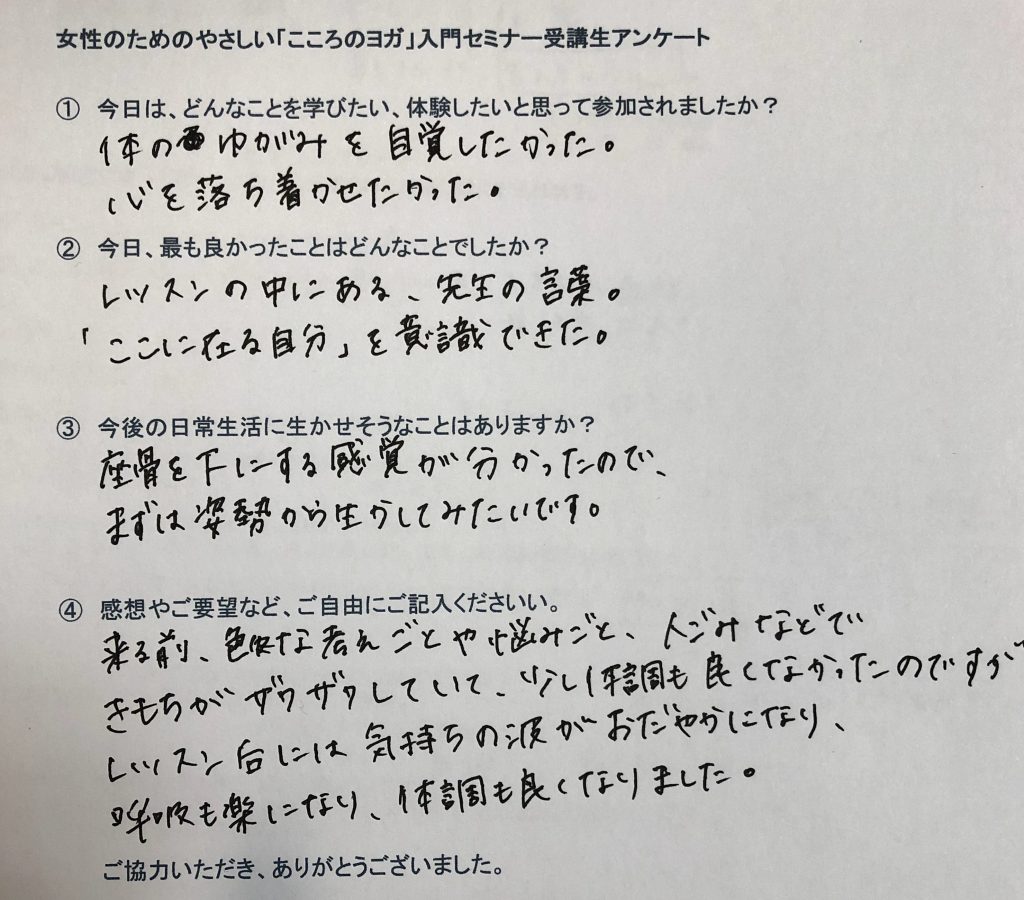 女性のためのやさしい「こころのヨガ」入門セミナー受講生アンケート
① 今日は、どんなことを学びたい、体験したいと思って参加されましたか？
体のゆがみを自覚したかった。
心を落ち着かせたかった。
② 今日、最も良かったことはどんなことでしたか？
レッスンの中にある、先生の言葉。
「ここに在る自分」を意識できた。
③ 今後の日常生活に生かせそうなことはありますか？
座骨を下にする感覚が分かったので、
まずは姿勢から生かしてみたいです。
④ 感想やご要望など、ご自由にご記入くださいい。
来る前、色々な考えごとや悩みごと、人ごみなどで
きもちがザワザワしていて、少し体調も良くなかったのですが
レッスン后には気持ちの波がおだやかになり、
呼吸も楽になり、体調も良くなりました。
ご協力いただき、ありがとうございました。